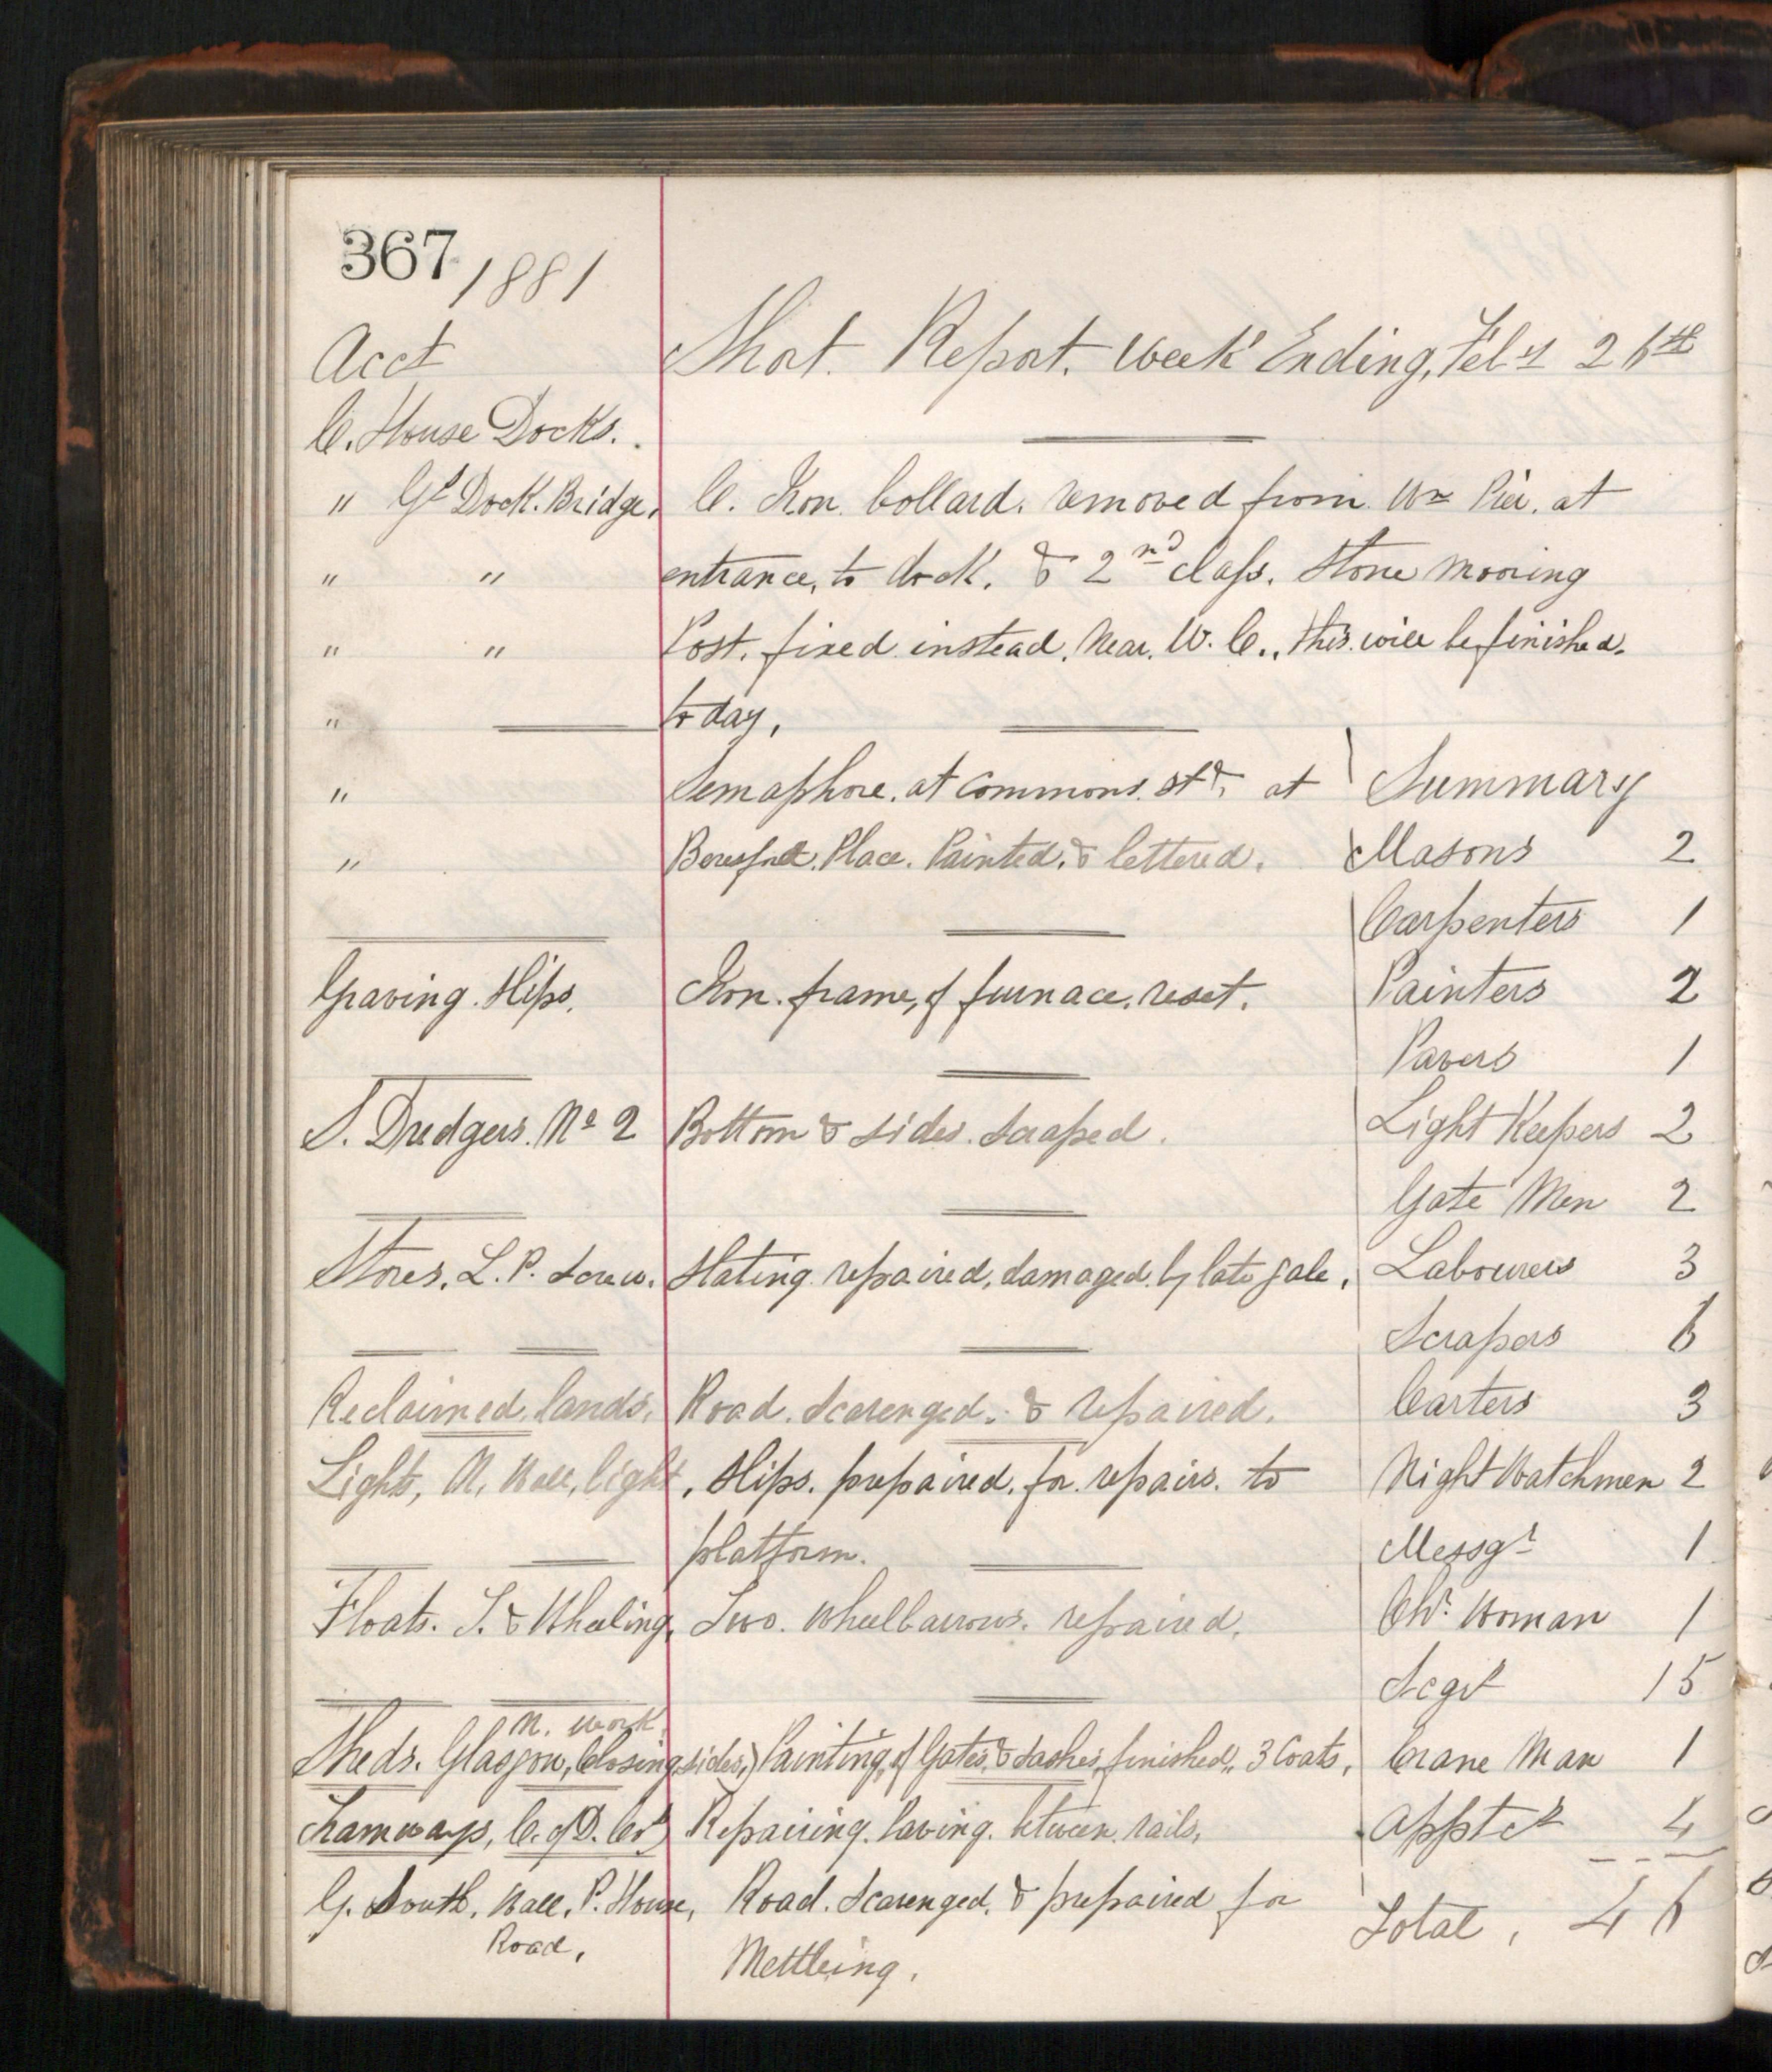 367 1881
Acct Short. Report. Week Ending, Feby 26th
C. House Docks.
" Gs Dock. Bridge, C. Iron bollard. removed from Wm Pier. at
" " entrance, to dock. & 2nd class. Stone mooring
" " Post. fixed instead. Near. W. C., this will be finished.
" to day,
" Semaphore. at Commons. St, at Summary
" Beresford. Place. Painted. & lettered. Masons 2
Carpenters 1
Graving Slips. Iron. frame, of furnace. reset. Painters 2
Pavers 1
S. Dredgers. No 2 Bottom & sides. scraped. Light Keepers 2
Gate Men 2
Stores. L. P. Screw. Slating repaired, damaged by late gale, Labourers 3
Scrapers 6
Reclaimed lands. Road. scavenged. & repaired. Carters 3
Lights, N. Wall, light, Slips. prepaired. for repairs. to Night Watchmen 2
platform. Messgr 1
Floats. T. & Whaling, Two. wheelbarrows. repaired. Chr. Woman 1
Scgrs 15
N. work
Sheds. Glasgow, Closing sides,) Painting, of Gates & sashes, finished,, 3 Coats, Crane Man 1
Tramways, C. of D. Co) Repairing. Paving. between rails, Apptcs 4
G. South. Wall. P. House, Road. Scavenged, & prepaired for Total, 46
Road, Mettleing.